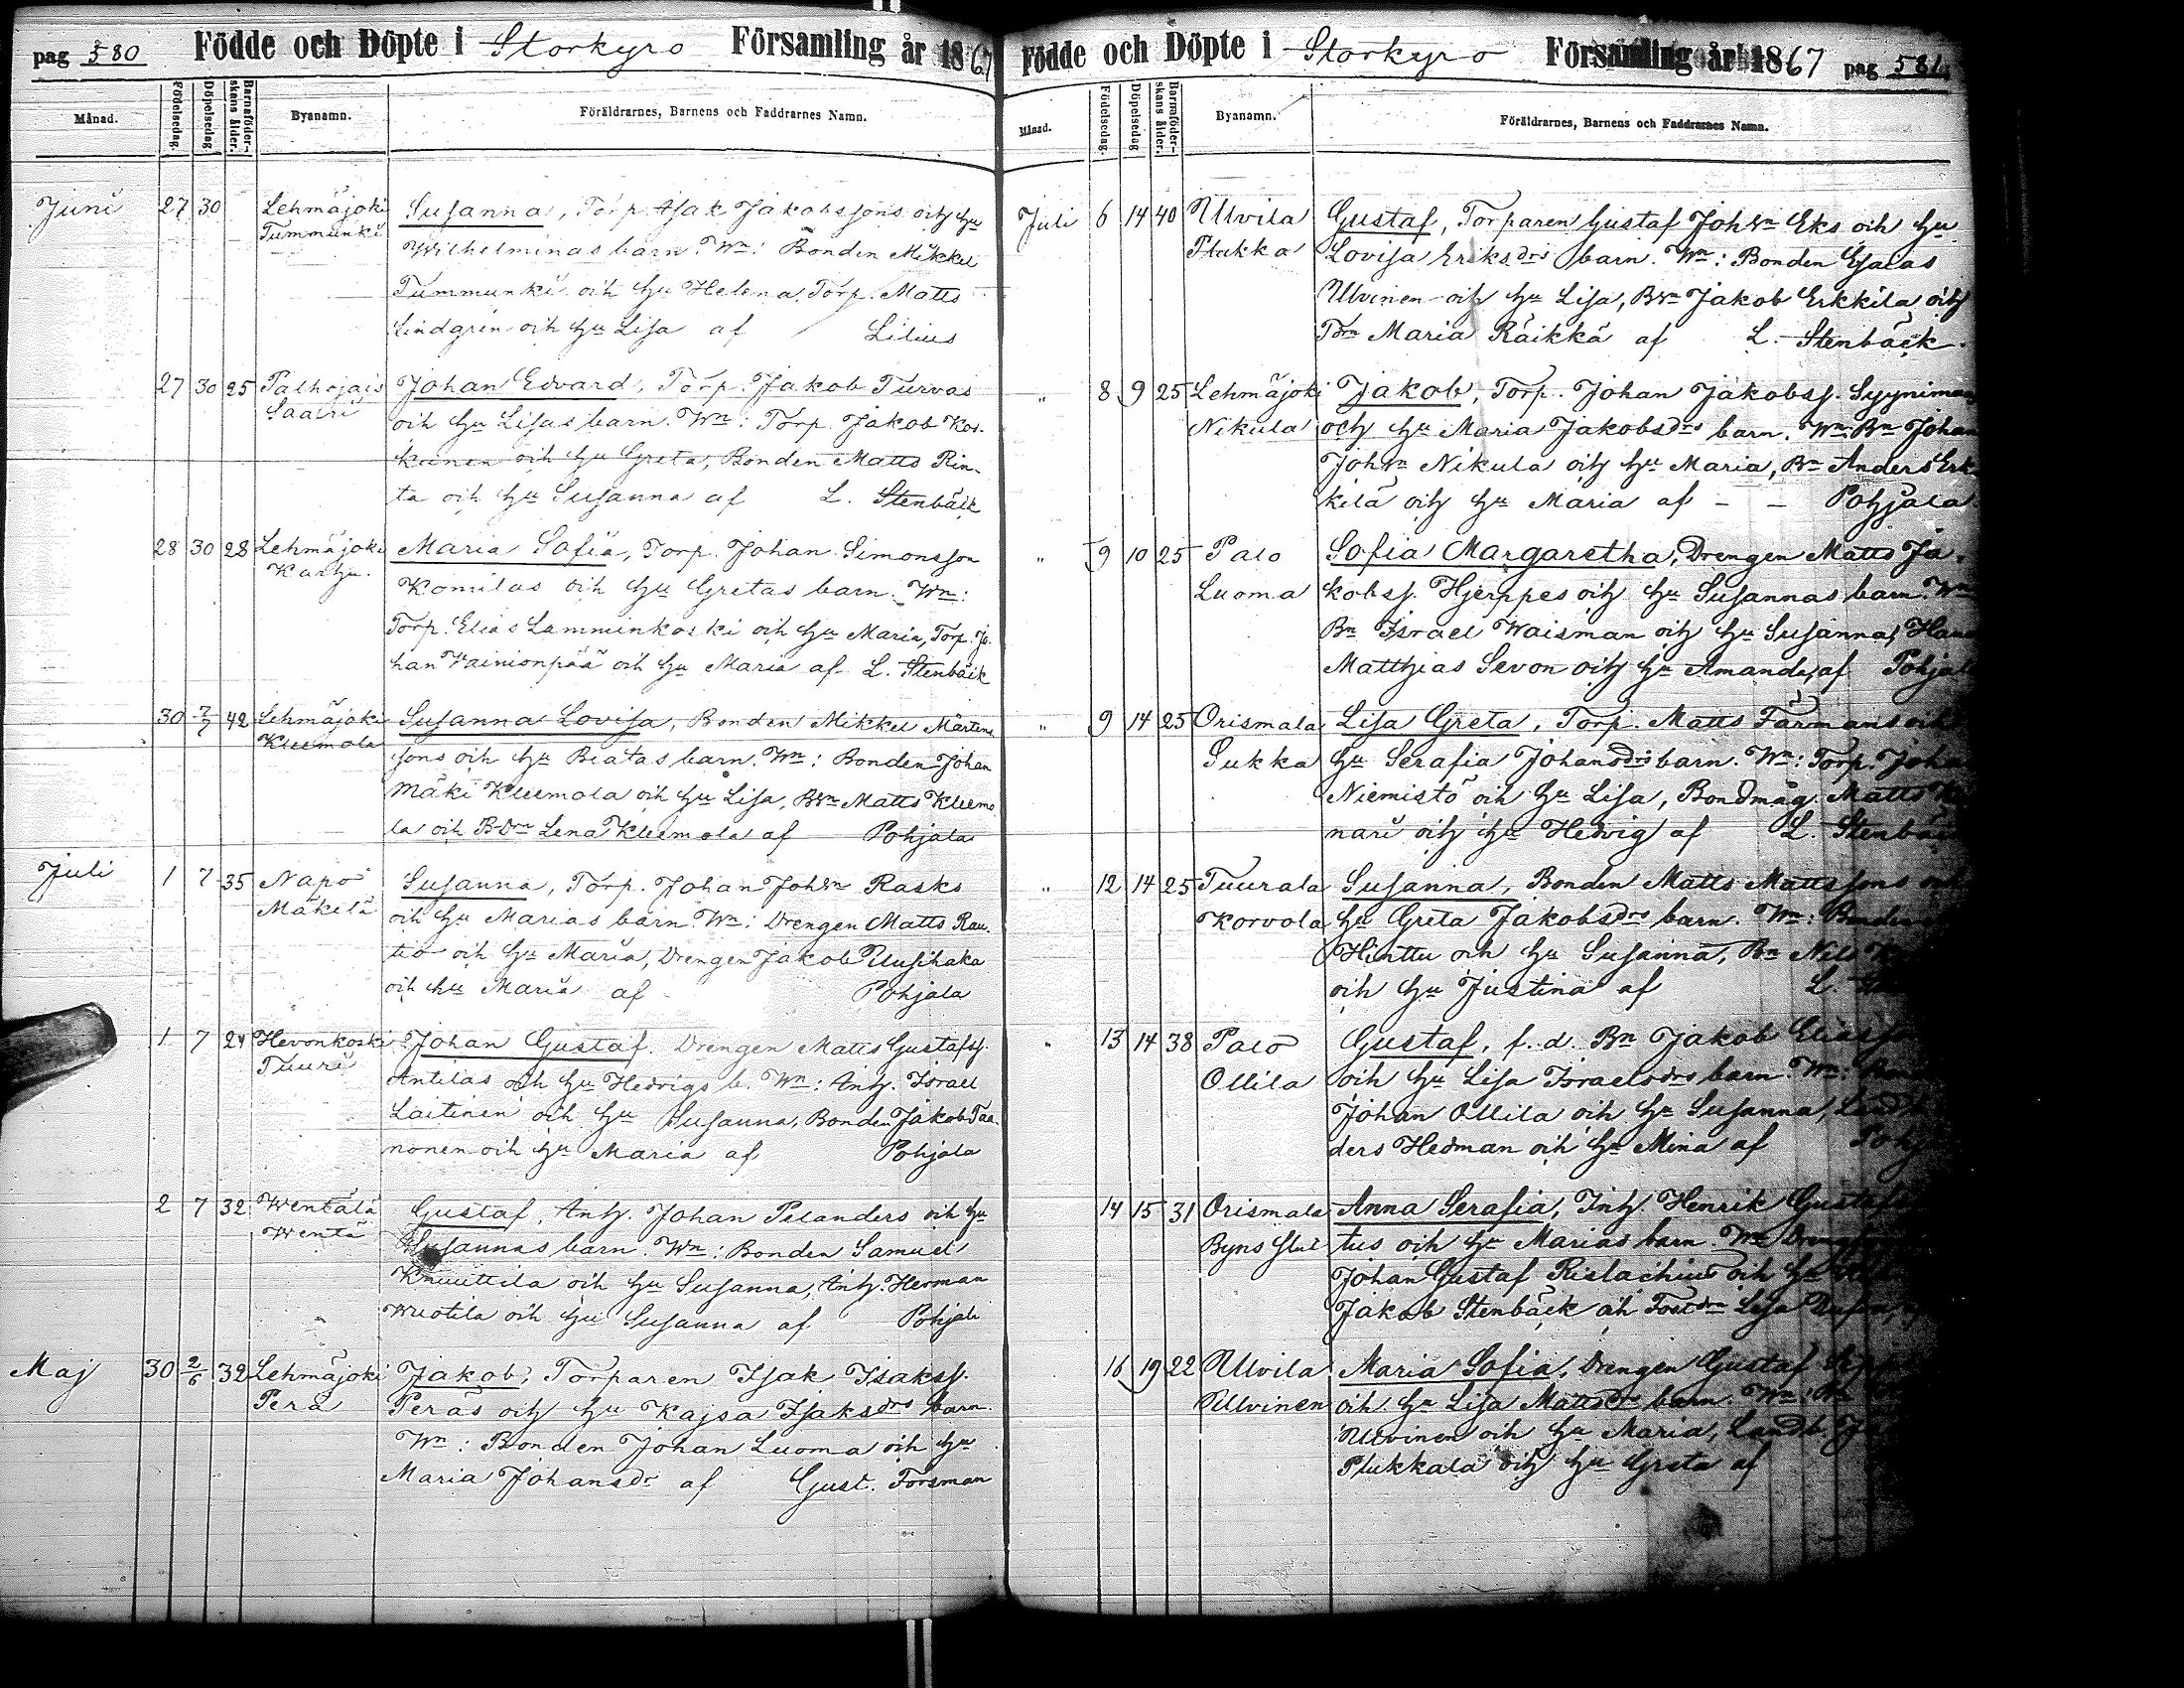 pag 580 Födde och Döpte i Storkyro Församling år 1867
Månad. Födelsedag. Döpelsedag. Barnaföderskans ålder. Byanamn. Föräldrarnes, Barnens och Faddrarnes Namn.
Juni 27 30 Lehmäjoki Susanna, Torp. Isak Jakobssons och hu
Tummunki Wilhelminas barn. Wn: Bonden Mikkel
Tummunki och hu Helena, Torp. Matts
Lindgren och hu Lisa af Lilius
27 30 25 Palhojais Johan Edvard, Torp. Jakob Turvas
Saari och hu Lisas barn. Wn: Torp. Jakob Kos-
kinen och hu Greta, Bonden Matts Rin-
ta och hu Susanna af L. Stenbäck
28 30 28 Lehmäjoki Maria Sofia, Torp. Johan Simonsson
Karhu. Komilas och hu Gretas barn. Wn:
Torp. Elias Lamminkoski och hu Maria, Torp. Jo-
han Wainionpää och hu Maria af L. Stenbäck
30 7/7 42 Lehmäjoki Susanna Lovisa, Bonden Mikkel Mårtens
Kleemola sons och hu Beatas barn. Wn: Bonden Johan
Mäki Kleemola och hu Lisa, Bsn Matts Kleemo
la och Bdn Lena Kleemola af Pohjala
Juli 1 7 35 Napo Susanna, Torp. Johan Johsn Rasks
Mäkelä och hu Marias barn. Wn: Drengen Matts Rau-
tio och hu Maria, Drengen Jakob Uusihaka
och hu Maria af Pohjala
1 7 24 Hevonkoski Johan Gustaf. Drengen Matts Gustafss.
Tuuri Antilas och hu Hedvigs b. Wn: Inh. Israel
Laitinen och hu Susanna, Bonden Jakob Taa-
nonen och hu Maria af Pohjala
2 7 32 Wentälä Gustaf, Inh. Johan Pelanders och hu
Wentä Susannas barn. Wn: Bonden Samuel
Knuuttila och hu Susanna, Inh. Herman
Wuotila och hu Susanna af Pohjala
Maj 30 2/6 32 Lehmäjoki Jakob, Torparen Isak Isakss.
Perä Peräs och hu Kajsa Isaksdrs barn.
Wn: Bonden Johan Luoma och hu
Maria Johansdr af Gust. Forsman
Födde och Döpte i Storkyro Församling år 1867 pag 581
Månad. Födelsedag. Döpelsedag. Barnaföderskans ålder. Byanamn. Föräldrarnes, Barnens och Faddrarnes Namn.
Juli 6 14 40 Ulvila Gustaf, Torparen Gustaf Johsn Eks och hu
Plukka Lovisa Eriksdrs barn. Wn: Bonden Esaias
Ulvinen och hu Lisa, Bsn Jakob Erkkilä och
Torn Maria Räikkä af L. Stenbäck.
" 8 9 25 Lehmäjoki Jakob, Torp. Johan Jakobss. Syynimaa
Nikula och hu Maria Jakobsdrs barn. Wn: Bn Johan
Johsn Nikula och hu Maria, Bn Anders Erk-
kilä och hu Maria af - - Pohjala.
" 9 10 25 Palo Sofia Margaretha, Drengen Matts Ja-
Luoma kobss. Hjerppes och hu Susannas barn. Wn
Bn Israel Waisman och hu Susanna, Han
Matthias Sevon och hu Amanda, af Pohjala
" 9 14 25 Orismala Lisa Greta, Torp. Matts Färmans och
Sukka hu Serafia Johansdrs barn. Wn: Torp. Johan
Niemistö och hu Lisa, Bondmåg Matts
nari och hu Hedvig af L. Stenbäck
" 12 14 25 Tuurala Susanna, Bonden Matts Mattssons och
Korvola hu Greta Jakobsdrs barn. Wn: Bonden
Hinttu och hu Susanna, Bn Nils
och hu Justina af L.
" 13 14 38 Palo Gustaf, f. d. Bn Jakob Eliass
Ollila och hu Lisa Israelsdrs barn. Wn: Bonden
Johan Ollila och hu Susanna, Landb
ders Hedman och hu Mina af Pohj
14 15 31 Orismala Anna Serafia, Inh. Henrik Gustafs
Byns slut tus och hu Marias barn. Wn Dreng
Johan Gustaf Rislachius och hu
Jakob Stenbäck och Lisa
16 19 22 Ulvila Maria Sofia, Drengen Gustaf
Ulvinen och hu Lisa Mattsdrs barn. Wn: Bn
Ulvinen och hu Maria, Landb. J
Plukkala och hu Greta af